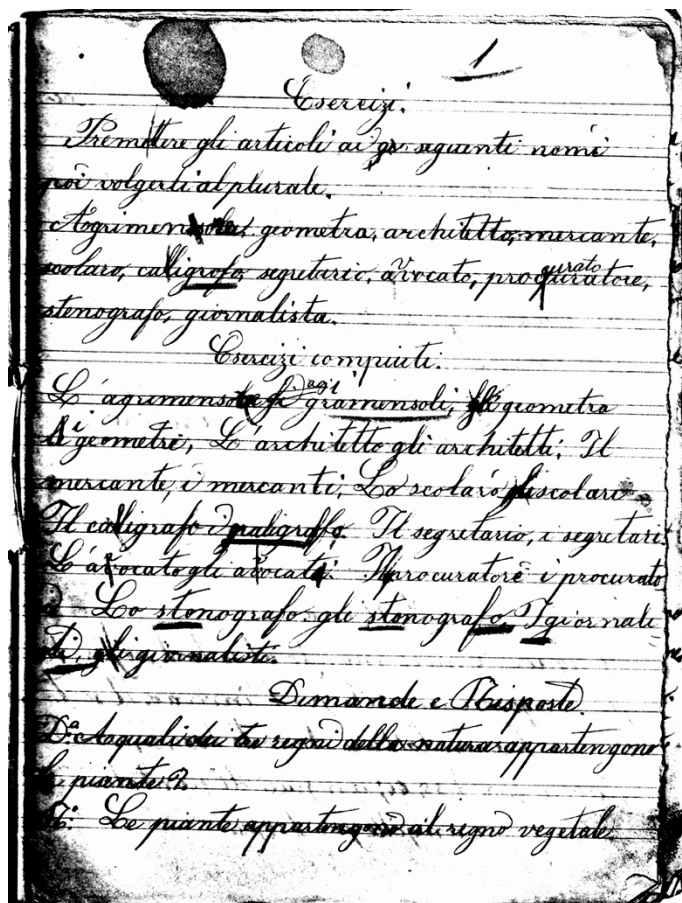 1
Esercizi.
Premettere gli articoli ai seguenti nomi
poi volgerli al plurale.
geometra, architetto, mercante,
scolaro, calligrofo, segretario, avvocato, procuratore,
stenografo, giornalista.
Esercizi compiuti.
L'agrimensore gramensoli, geometra
i geometri, L'architetto gli architetti; Il
mercante, i mercanti; Lo scolaro scolari
Il calligrafo Il segretario, i segretari.
L'avvocato gli Il procuratore i procurato
Lo stenografo gli stenografo, I giornali
gli giornalisti.
Dimande e Risposte.
D.a A quali dei tre regni della natura appartengono
le piante?
R.a Le piante appartengono al regno vegetale